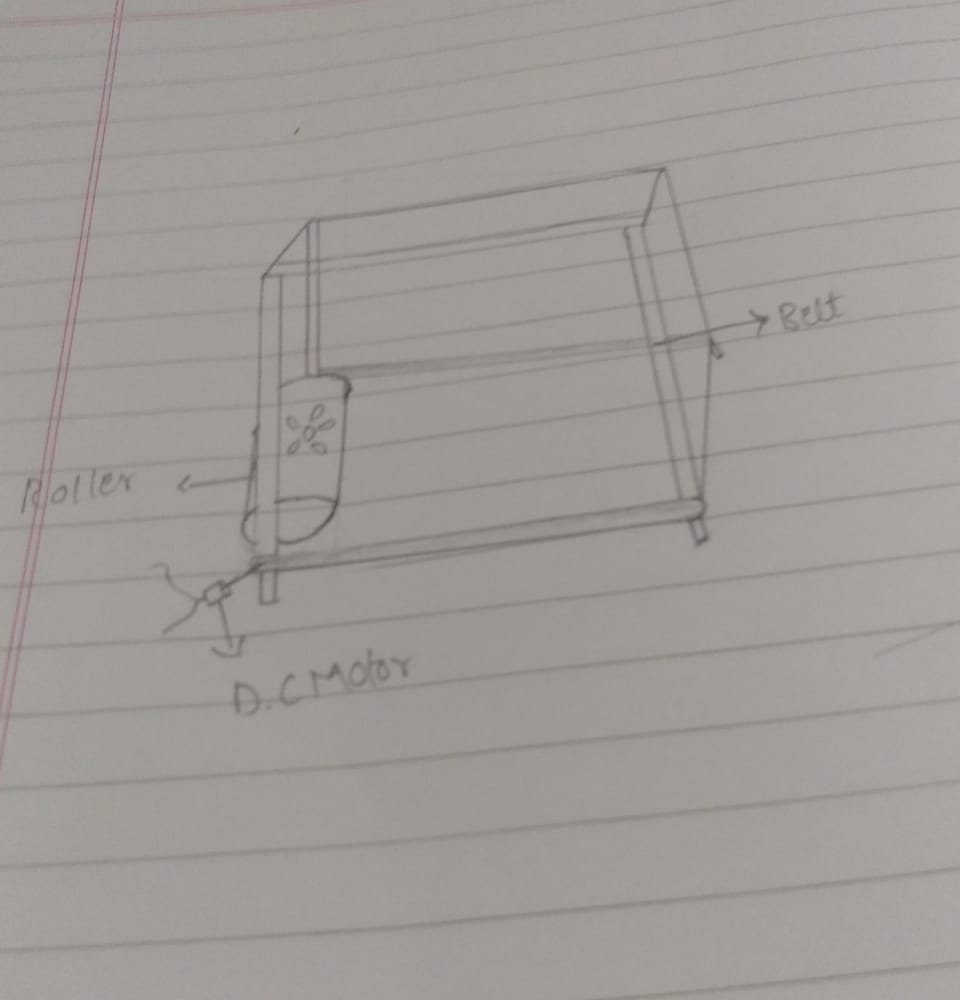 Belt
Roller
D.C Motor